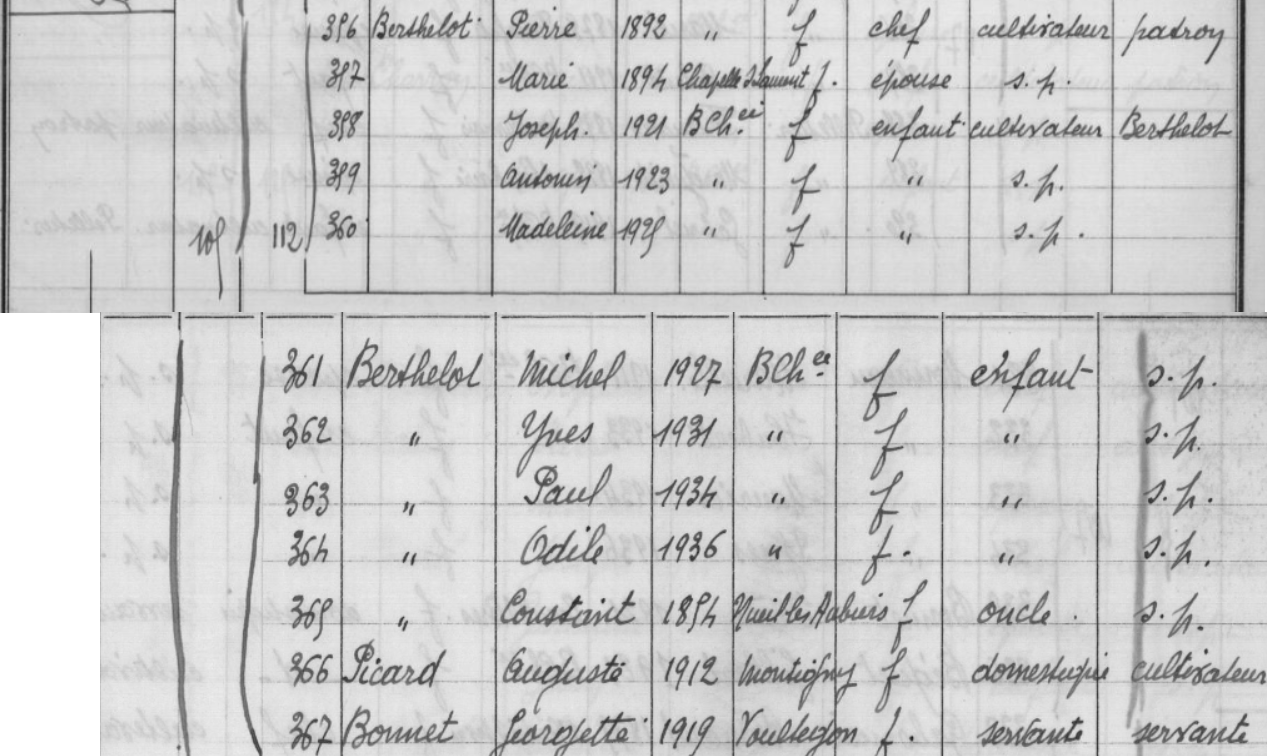 356 Berthelot Pierre 1892 " f chef cultivateur patron
357 Marie 1894 Chapelle St Laurent f. épouse s.p.
358 Joseph. 1921 BCh.ce f enfant cultivateur Berthelot
359 Antonin 1923 " f " s.p.
105 112 360 Madeleine 1925 " f " s.p.
361 Berthelot Michel 1927 BCh.ce f enfant s.p.
362 " Yves 1931 " f " s.p.
363 " Paul 1934 " f " s.p.
364 " Odile 1936 " f. " s.p.
365 " Constant 1854 Nueil les Aubiers f oncle. s.p.
366 Picard Auguste 1912 Montigny f domestique cultivateur
367 Bonnet Georgette 1919 Voultegon f. servante servante